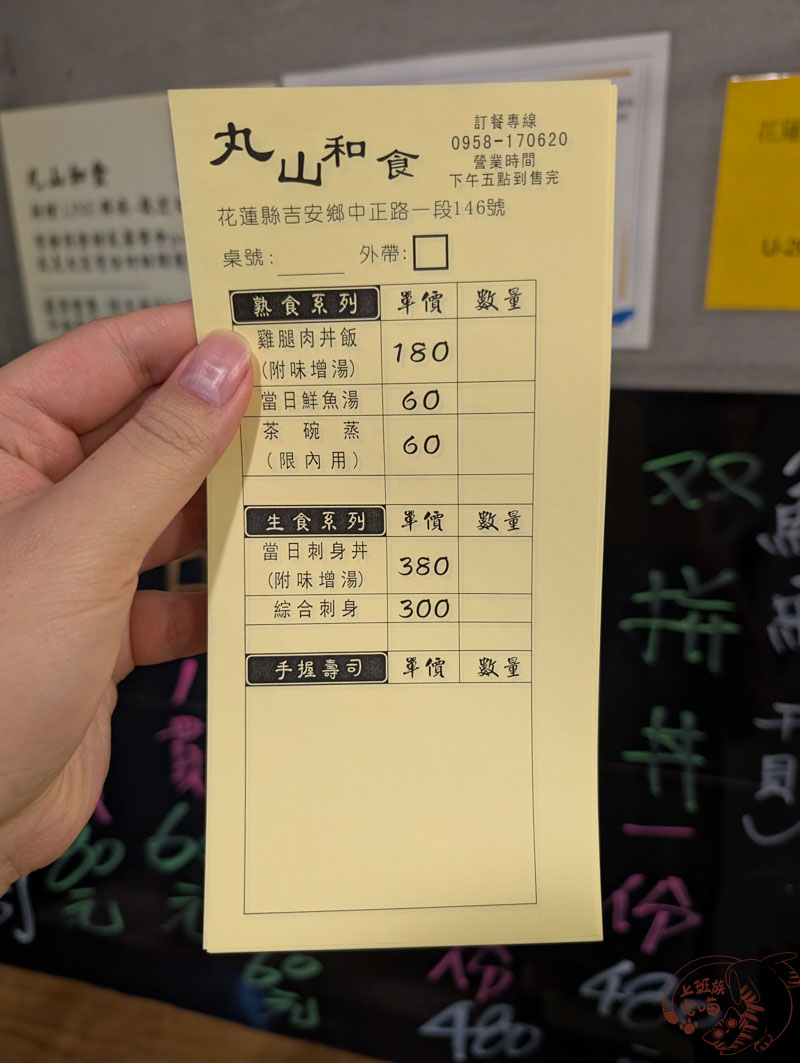 丸山和食
訂餐專線
0958-170620
營業時間
下午五點到售完
花蓮縣吉安鄉中正路一段146號
桌號: 外帶:
熟食系列 單價 數量
雞腿肉丼飯
(附味增湯) 180
當日鮮魚湯 60
茶碗蒸
(限內用) 60
生食系列 單價 數量
當日刺身丼
(附味增湯) 380
綜合刺身 300
手握壽司 單價 數量
丸山和食
花蓮
U-20
双拼丼
一份
480
一貫
60元
60元
份
480
上班族